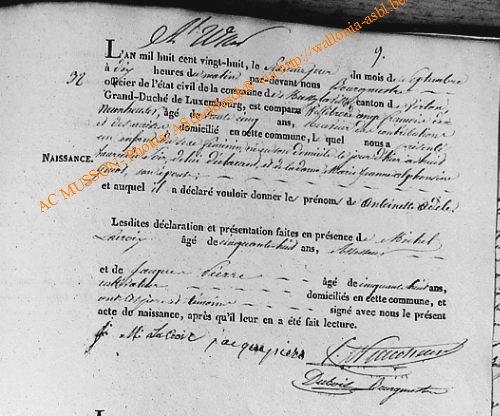 9.
L'AN mil huit cent vingt-huit, le neuvième jour du mois de Septembre
à dix heures du matin par-devant nous Bourgmestre
officier de l'état civil de la commune de canton de Virton
Grand-Duché de Luxembourg, est comparu françois de
âgé de trente cinq ans, Receveur des contributions
et des accises domicilié en cette commune, lequel nous a présenté
32
un enfant du sexe féminin, né en son domicile le jour d'hier à huit
NAISSANCE.
heures du soir, de lui déclarant et de la dame Marie Jeanne alphonsine
son épouse
et auquel il a déclaré vouloir donner les prénoms de Antoinette Adèle.
Lesdites déclaration et présentation faites en présence de Michel
Lacroix âgé de cinquante huit ans, Assesseur
et de Jacques Pierre âgé de cinquante huit ans,
domiciliés en cette commune, et
ont et témoins signé avec nous le présent
acte de naissance, après qu'il leur en a été fait lecture.
M: La Croix jacque pierre
Dubois Bourgmestre
AC MUSSON: Photo: Ambre Asbl Wallonia http://wallonia-asbl.be